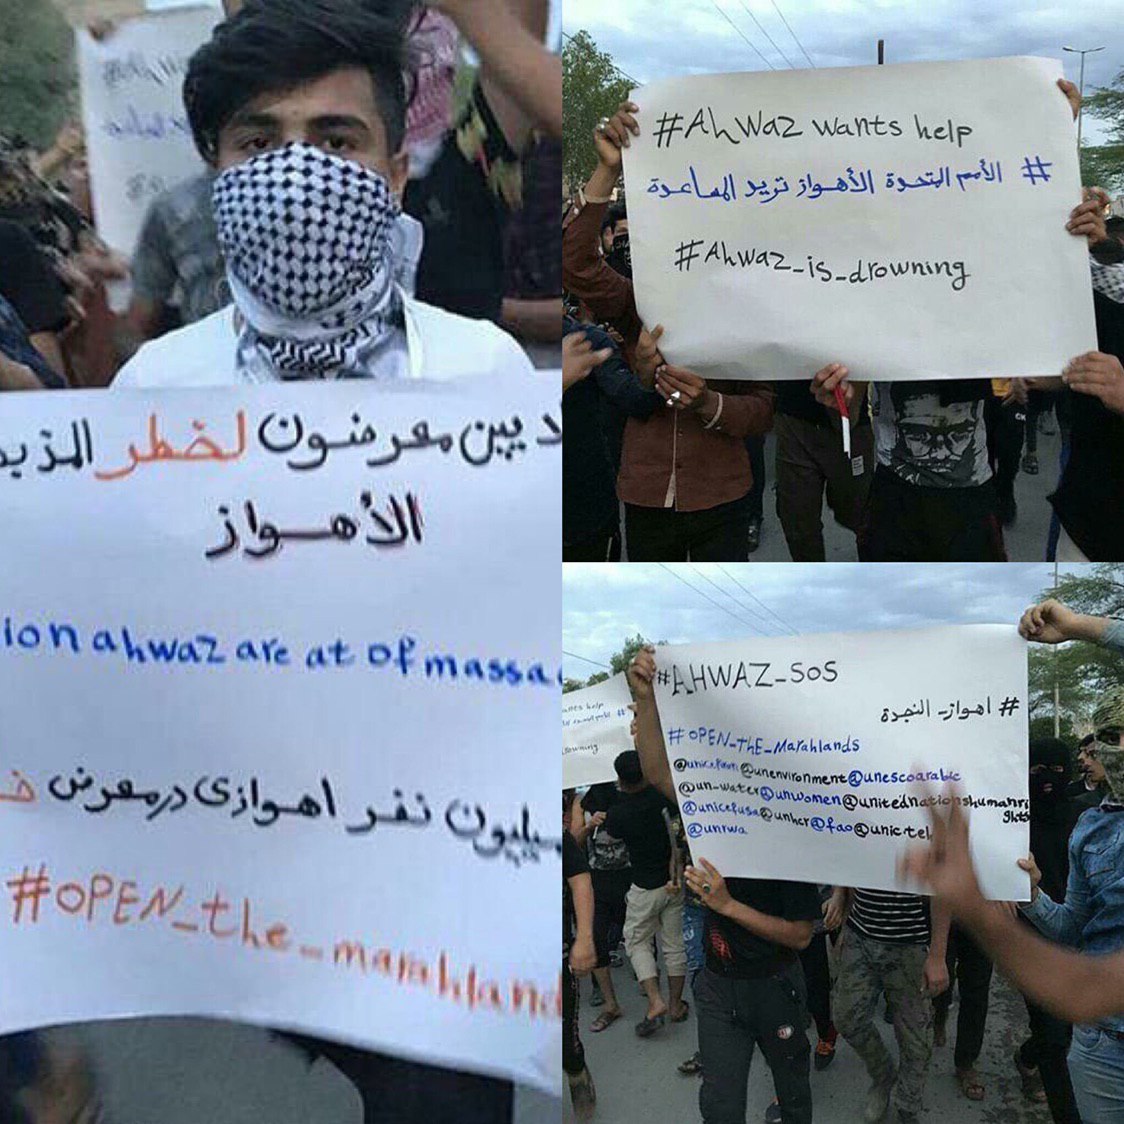 ديين معرضون لخطر المذبح
الأهـواز
ion ahwaz are at of massa
ميليون نفر اهوازی در معرض خ
#OPEN_the_marahland
#Ahwaz wants help
# الأمم المتحدة الأهواز تريد المساعدة
#Ahwaz_is_drowning
#AHWAZ_SOS
# اهواز_النجدة
#OPEN_ThE_Marahlands
@unicefiran@unenvironment@unescoarabic
@un-water@unwomen@unitednationshumanri
ghts
@unicefusa@unhcr@fao@unictehran
@unrwa